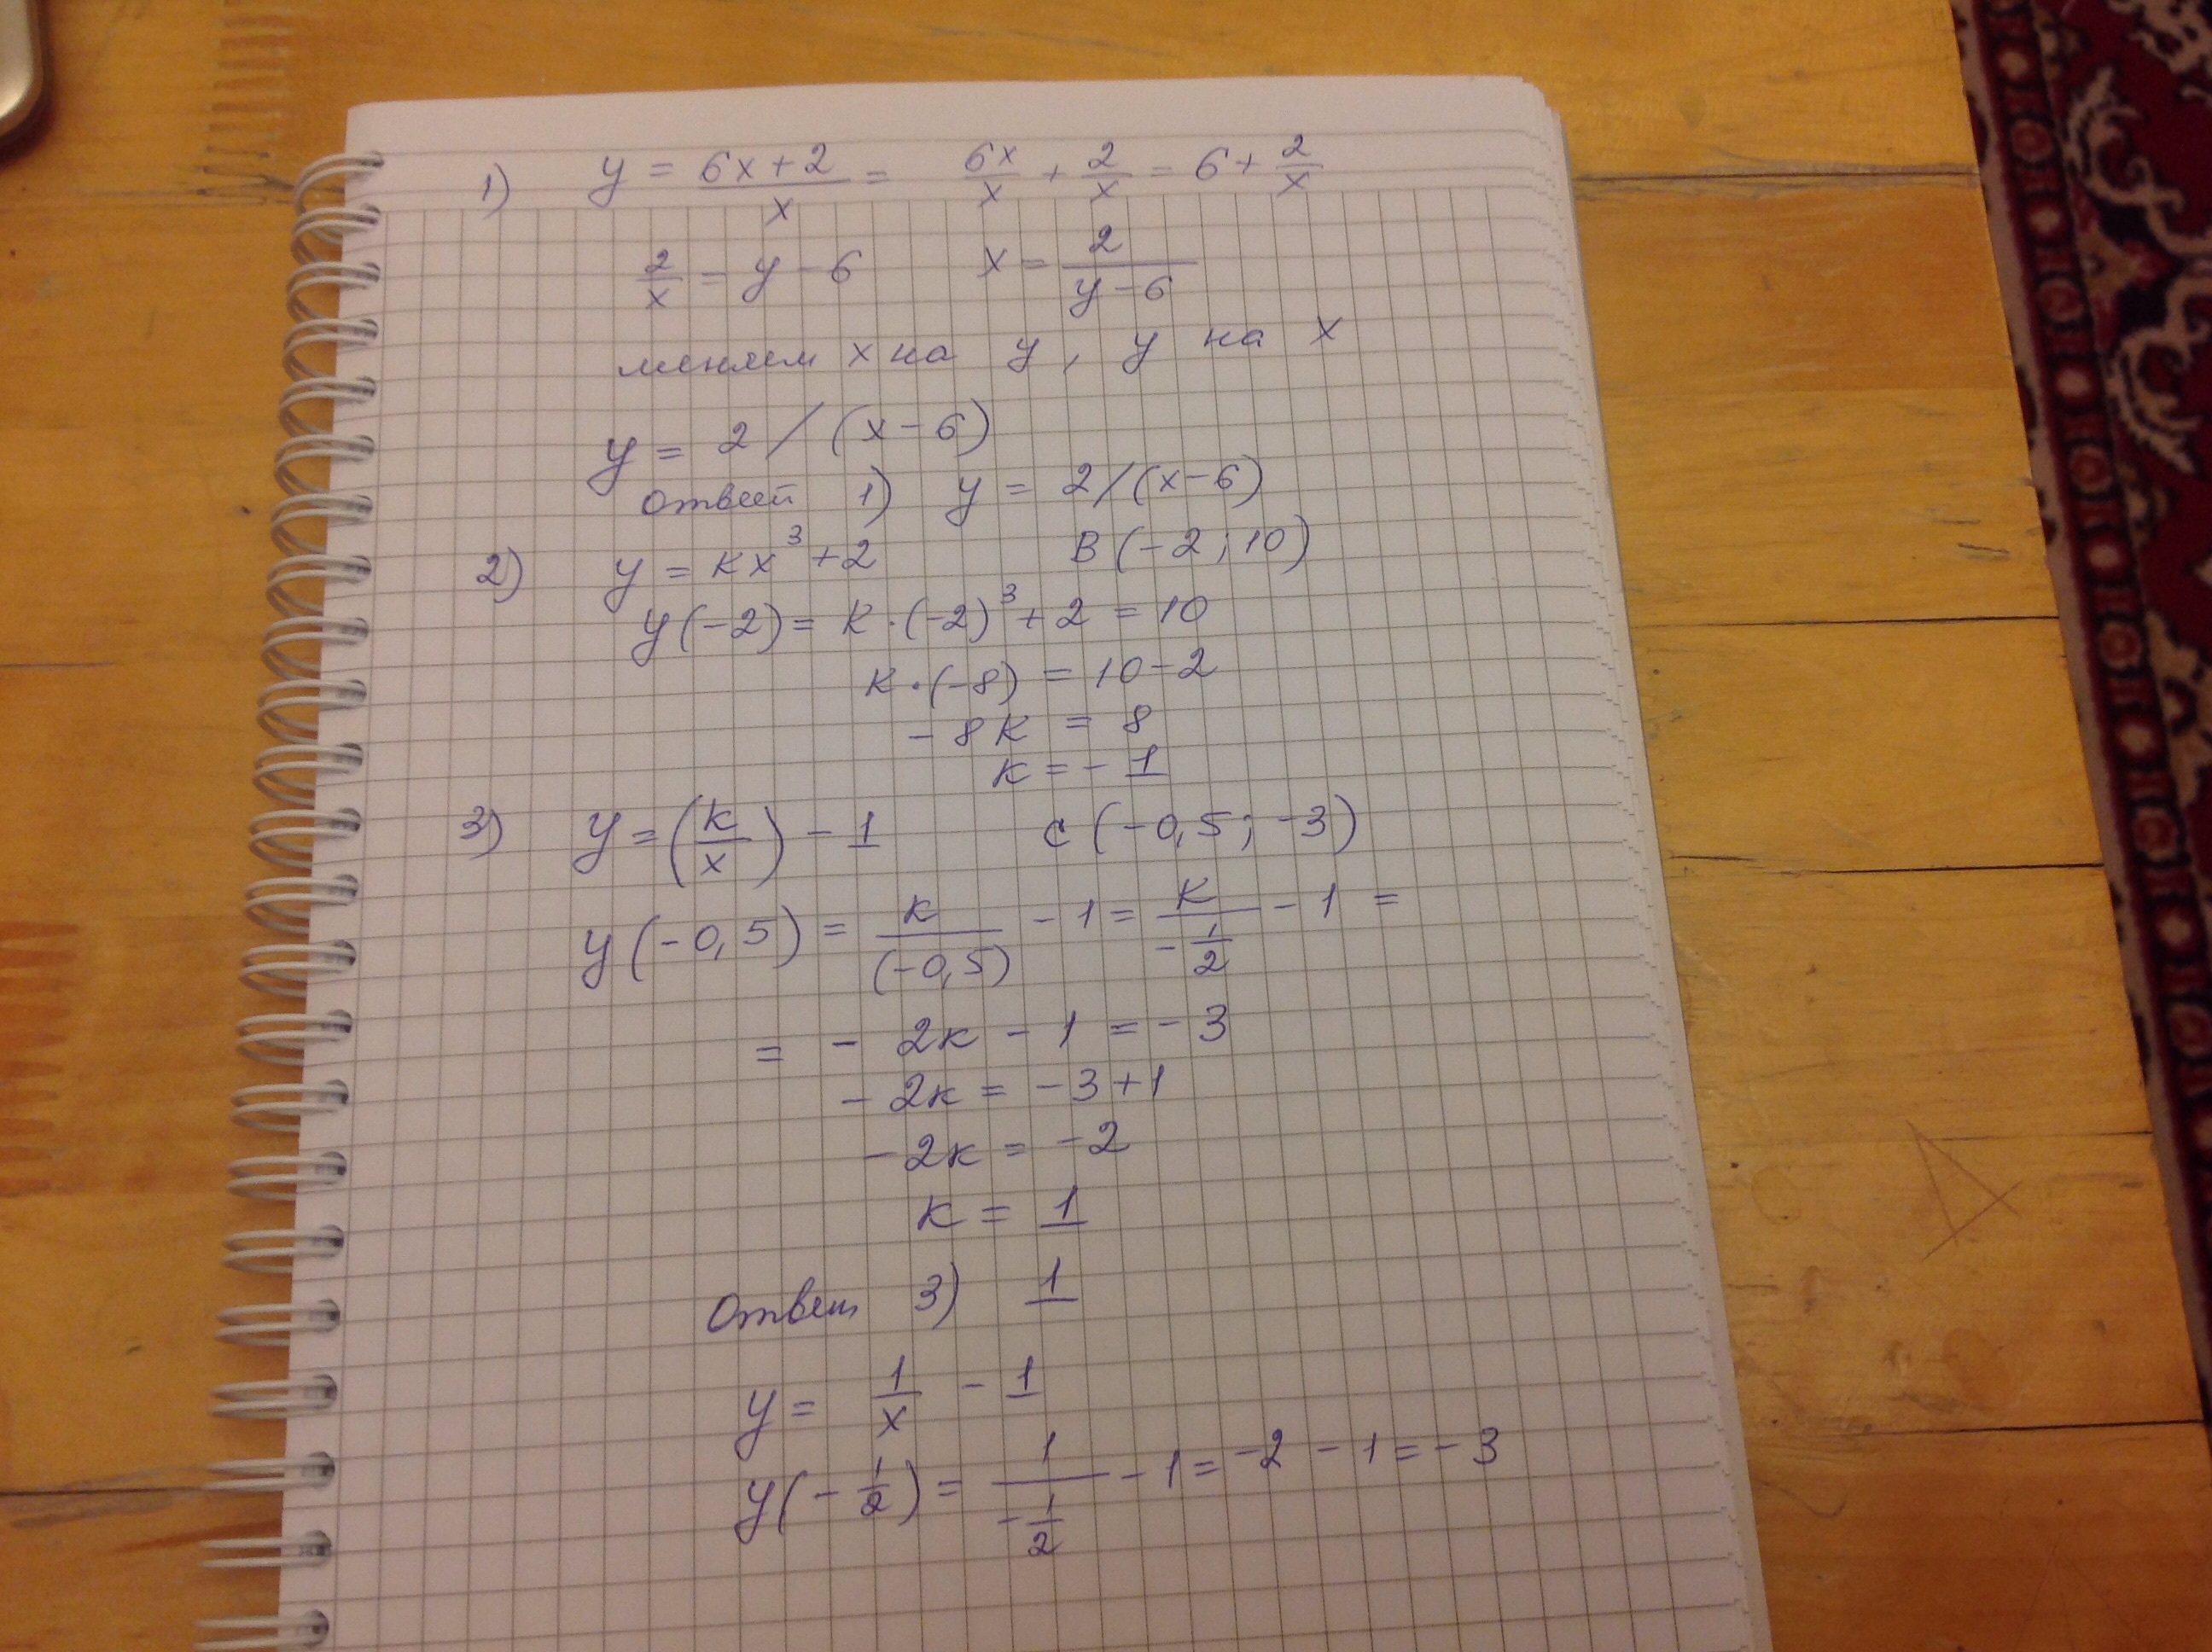 1) y = (6x+2)/x = 6x/x + 2/x = 6 + 2/x
2/x = y - 6    x = 2/(y-6)
меняем x на y, y на x
y = 2/(x-6)
ответ 1) y = 2/(x-6)
2) y = kx³+2    B(-2; 10)
y(-2) = k·(-2)³+2 = 10
k·(-8) = 10-2
-8k = 8
k = -1
3) y = (k/x) - 1    C(-0,5; -3)
y(-0,5) = k/(-0,5) - 1 = k/(-1/2) - 1 =
= -2k - 1 = -3
-2k = -3+1
-2k = -2
k = 1
Ответ 3) 1
y = 1/x - 1
y(-1/2) = 1/(-1/2) - 1 = -2 - 1 = -3